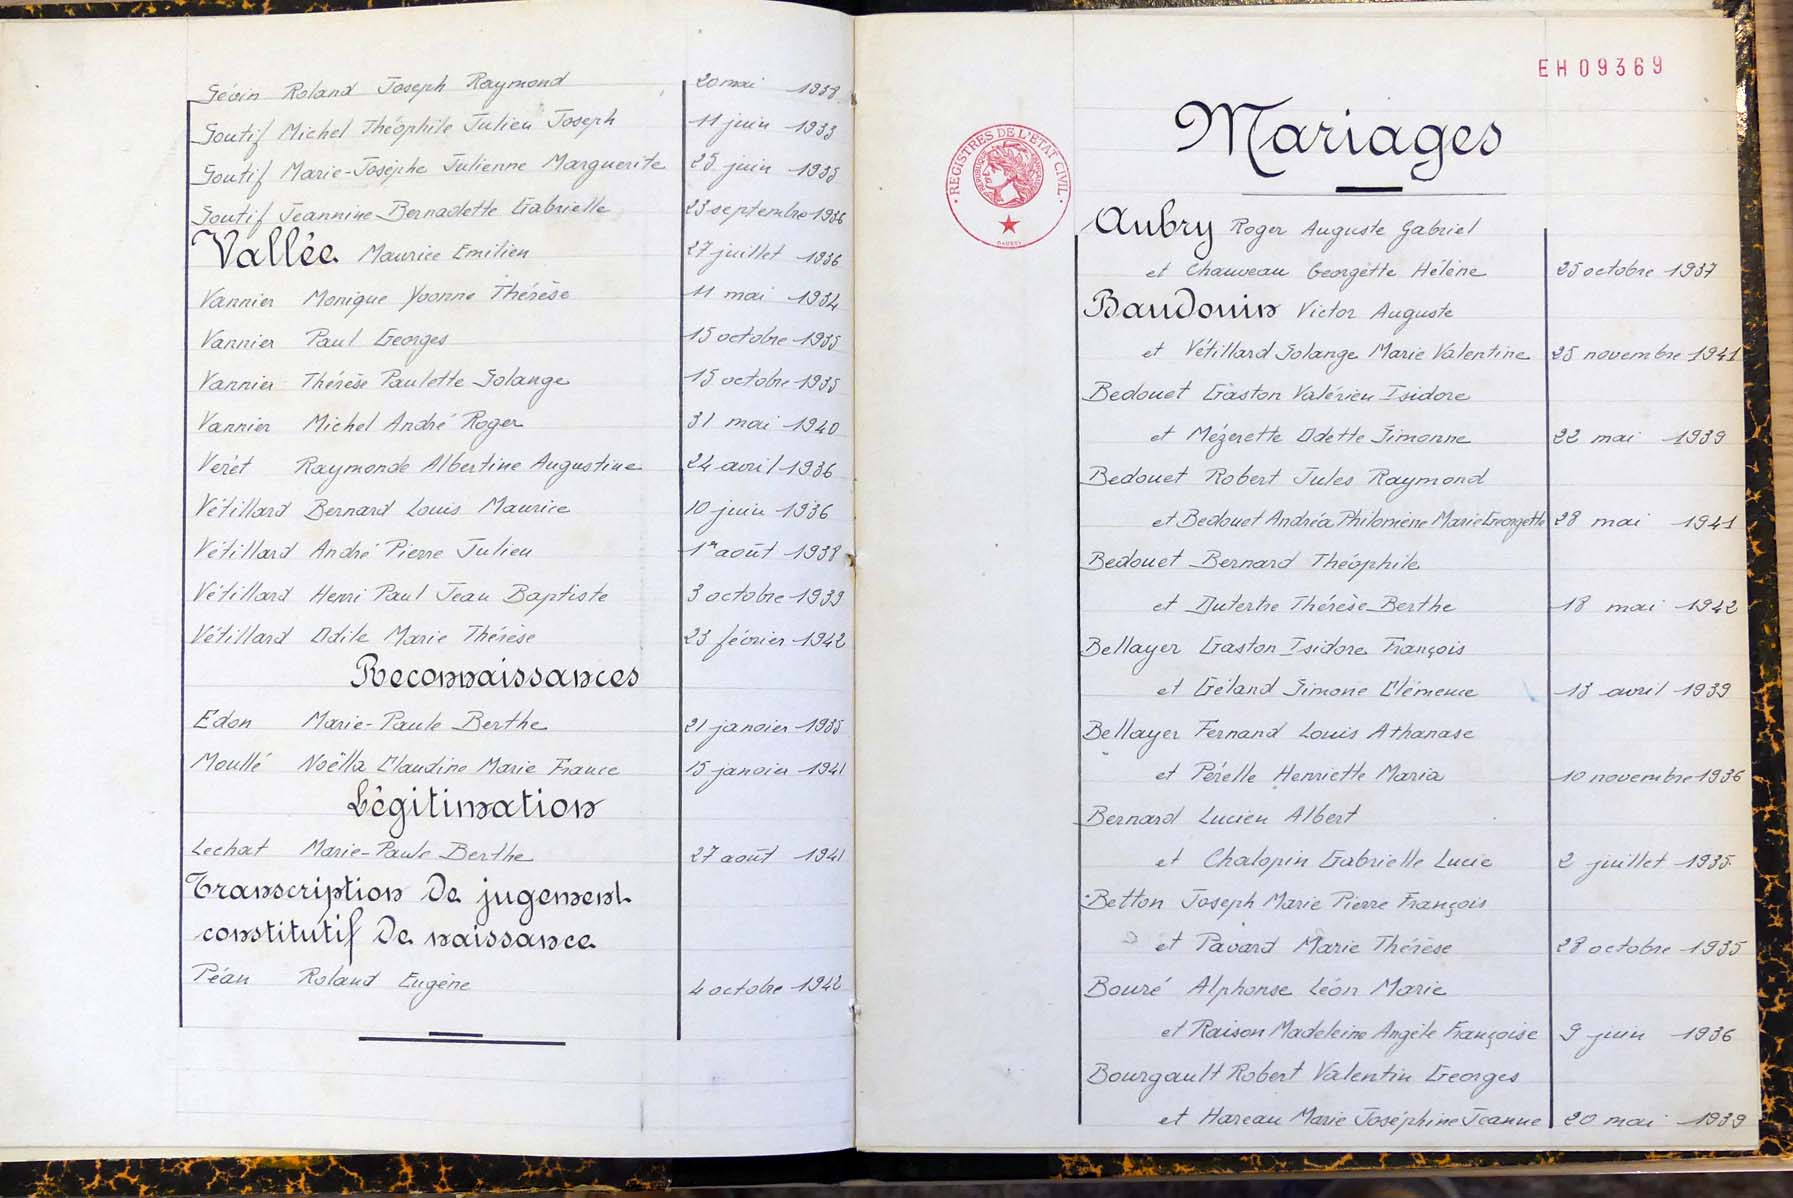 Sévin Roland Joseph Raymond 20 mai 1938
Soutif Michel Théophile Julien Joseph 11 juin 1933
Soutif Marie-Josèphe Julienne Marguerite 25 juin 1935
Soutif Jeannine Bernadette Gabrielle 23 septembre 1936
Vallée Maurice Emilien 27 juillet 1936
Vannier Monique Yvonne Thérèse 11 mai 1934
Vannier Paul Georges 15 octobre 1935
Vannier Thérèse Paulette Solange 15 octobre 1935
Vannier Michel André Roger 31 mai 1940
Verét Raymonde Albertine Augustine 24 avril 1936
Vétillard Bernard Louis Maurice 10 juin 1936
Vétillard André Pierre Julien 1er août 1938
Vétillard Henri Paul Jean Baptiste 3 octobre 1939
Vétillard Odile Marie Thérèse 23 février 1942
Reconnaissances
Edon Marie-Paule Berthe 21 janvier 1935
Moullé Noëlla Claudine Marie France 15 janvier 1941
Légitimation
Lechat Marie-Paule Berthe 27 août 1941
Transcription de jugement
constitutif de naissance
Péan Roland Eugène 4 octobre 1942
EH09369
REGISTRES DE L'ÉTAT CIVIL
Mariages
Aubry Roger Auguste Gabriel
et Chauveau Georgette Hélène 25 octobre 1937
Baudouin Victor Auguste
et Vétillard Solange Marie Valentine 25 novembre 1941
Bedouet Gaston Valérien Isidore
et Mézerette Odette Simonne 22 mai 1939
Bedouet Robert Jules Raymond
et Bedouet Andréa Philomène Marie Georgette 28 mai 1941
Bedouet Bernard Théophile
et Dutertre Thérèse Berthe 18 mai 1942
Bellayer Gaston Isidore François
et Géland Simone Clémence 13 avril 1939
Bellayer Fernand Louis Athanase
et Pérelle Henriette Maria 10 novembre 1936
Bernard Lucien Albert
et Chalopin Gabrielle Lucie 2 juillet 1935
Betton Joseph Marie Pierre François
et Pavard Marie Thérèse 28 octobre 1935
Bouré Alphonse Léon Marie
et Raison Madeleine Angèle Françoise 9 juin 1936
Bourgault Robert Valentin Georges
et Hareau Marie Joséphine Jeanne 20 mai 1939